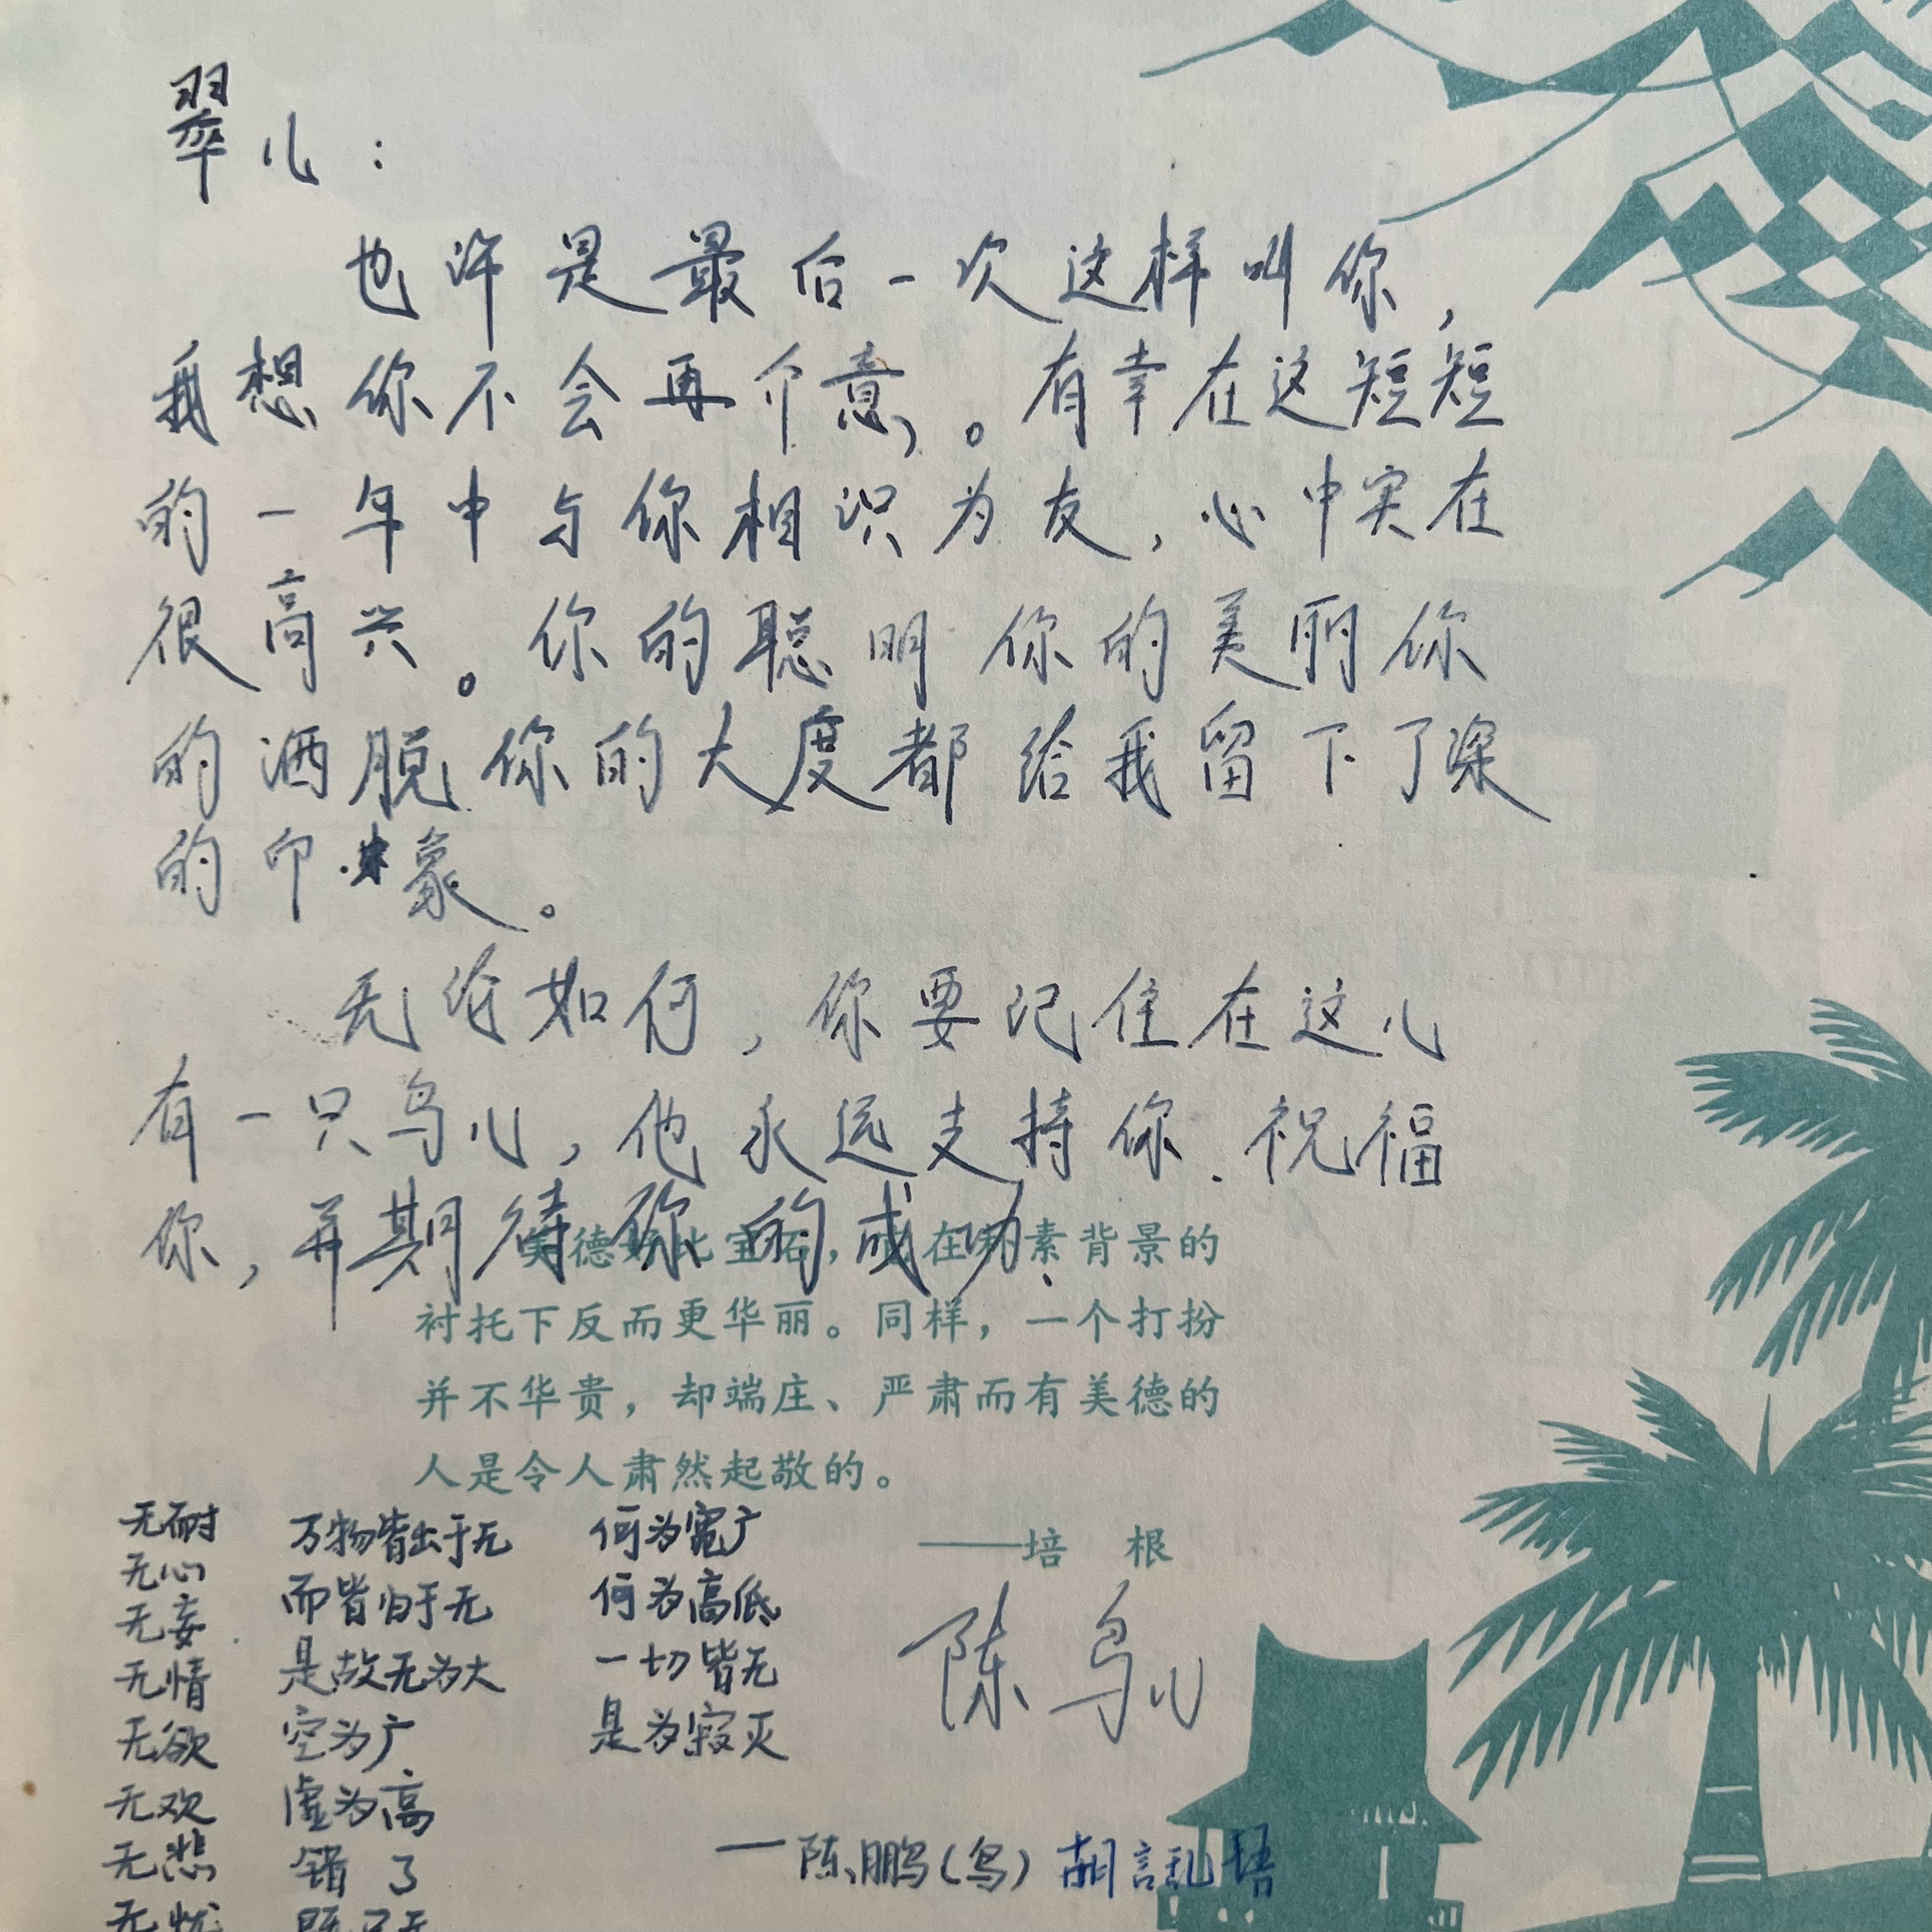 翠儿：
也许是最后一次这样叫你，
我想你不会再介意。有幸在这短短
的一年中与你相识为友，心中实在
很高兴。你的聪明你的美丽你
的洒脱你的大度都给我留下了深
的印象。
无论如何，你要记住在这儿
有一只鸟儿，他永远支持你.祝福
你，并期待你的成功.
美德好比宝石，在朴素背景的
衬托下反而更华丽。同样，一个打扮
并不华贵，却端庄、严肃而有美德的
人是令人肃然起敬的。
——培 根
陈鸟儿
无耐
无心
无妄
无情
无欲
无欢
无悲
无忧
万物皆出于无
而皆归于无
是故无为大
空为广
虚为高
错了
既
何为宽广
何为高低
一切皆无
是为寂灭
—陈鹏(鸟)胡言乱语